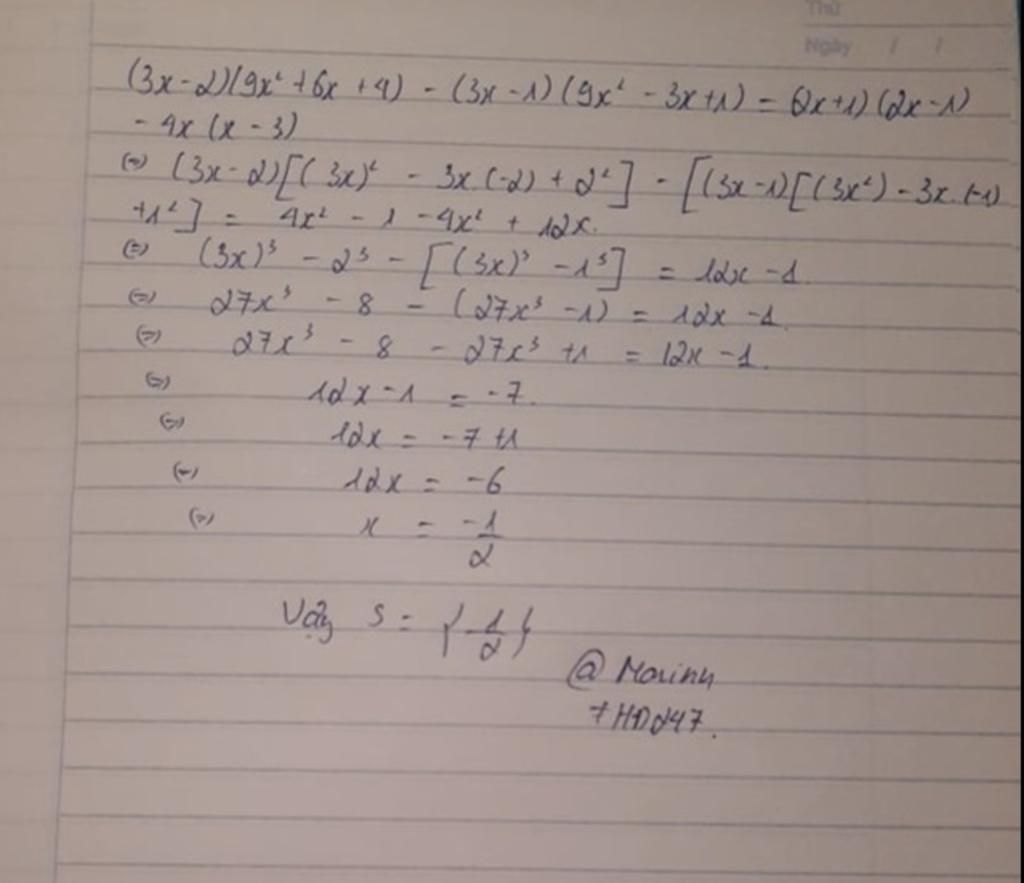 Thứ
Ngày / /
(3x-2)(9x² + 6x + 4) - (3x - 1)(9x² - 3x+1) = (2x+1)(2x-1)
- 4x (x - 3)
(=) (3x-2)[(3x)² - 3x.(-2) + 2²] - [(3x-1)[(3x²) - 3x.(-1)
+1²] = 4x² - 1 - 4x² + 12x.
(=) (3x)³ - 2³ - [(3x)³ - 1³] = 12x - 1
(=) 27x³ - 8 - (27x³ - 1) = 12x - 1.
(=) 27x³ - 8 - 27x³ + 1 = 12x - 1.
(=) 12x - 1 = -7.
(=) 12x = -7 + 1
(=) 12x = -6
(=) x = -1/2
Vậy S = {-1/2}
@ Marinh
7HD247.